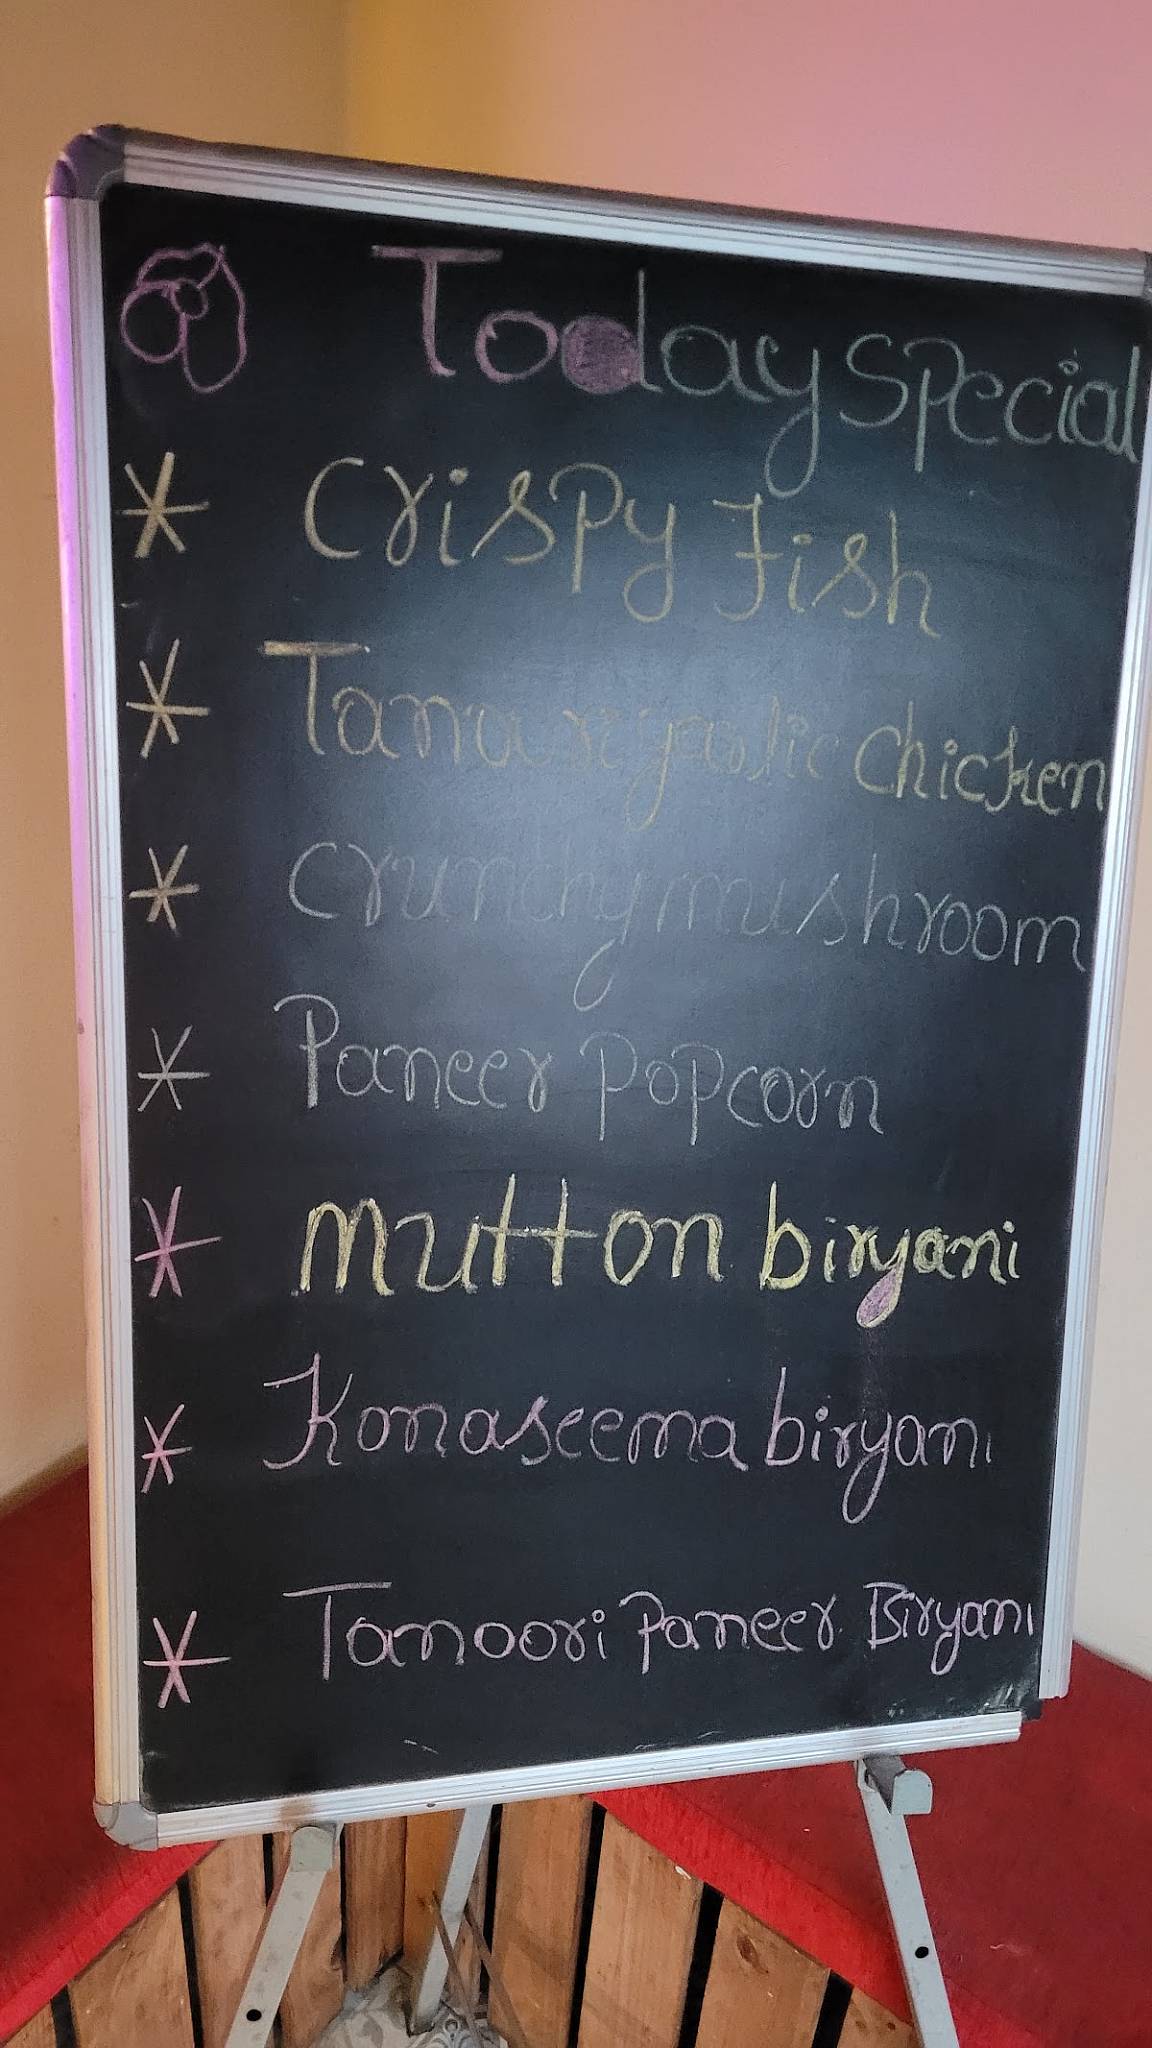 Today Special
Crispy Fish
garlic Chicken
Crunchy mushroom
Paneer Popcorn
mutton biryani
Konaseema biryani
Tanoori Paneer Biryani